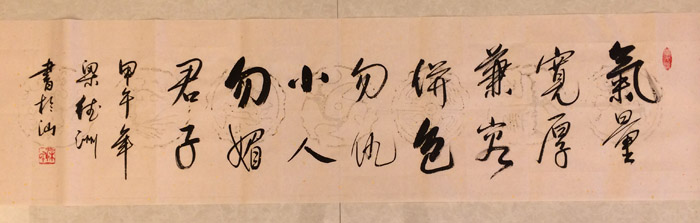 氣量
寬厚
兼容
併包
勿仇
小人
勿媚
君子
甲午年
梁佳洲
書於汕